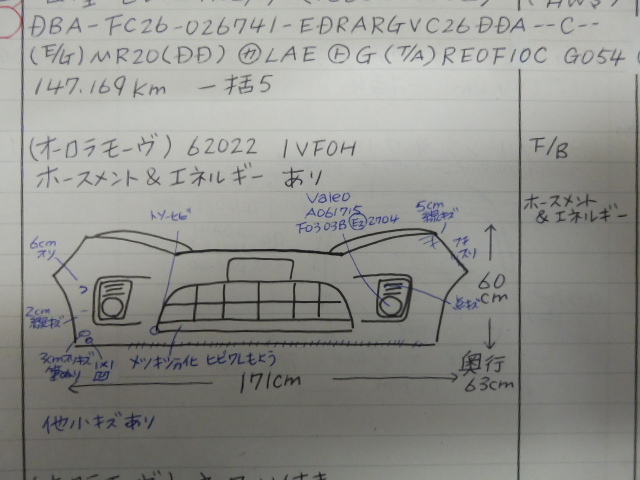 DBA-FC26-026741-EDRARGVC26DDA--C--
(E/G) MR20(DD) ㋕LAE ㋣G (T/A) RE0F10C G054
147.169km 一括5
(オーロラモーヴ) 62022 1VF0H
F/B
ホースメント&エネルギー あり
ホースメント
&エネルギー
トソーヒビ
Valeo
A061715
F0303B E2 2704
5cm
線キズ
6cm
オリ
2cm
線キズ
点キズ
60
cm
3cmスリキズ
筆ぬり
1×1
凹
メッキ劣化 ヒビワレもよう
171cm
奥行
63cm
他小キズあり